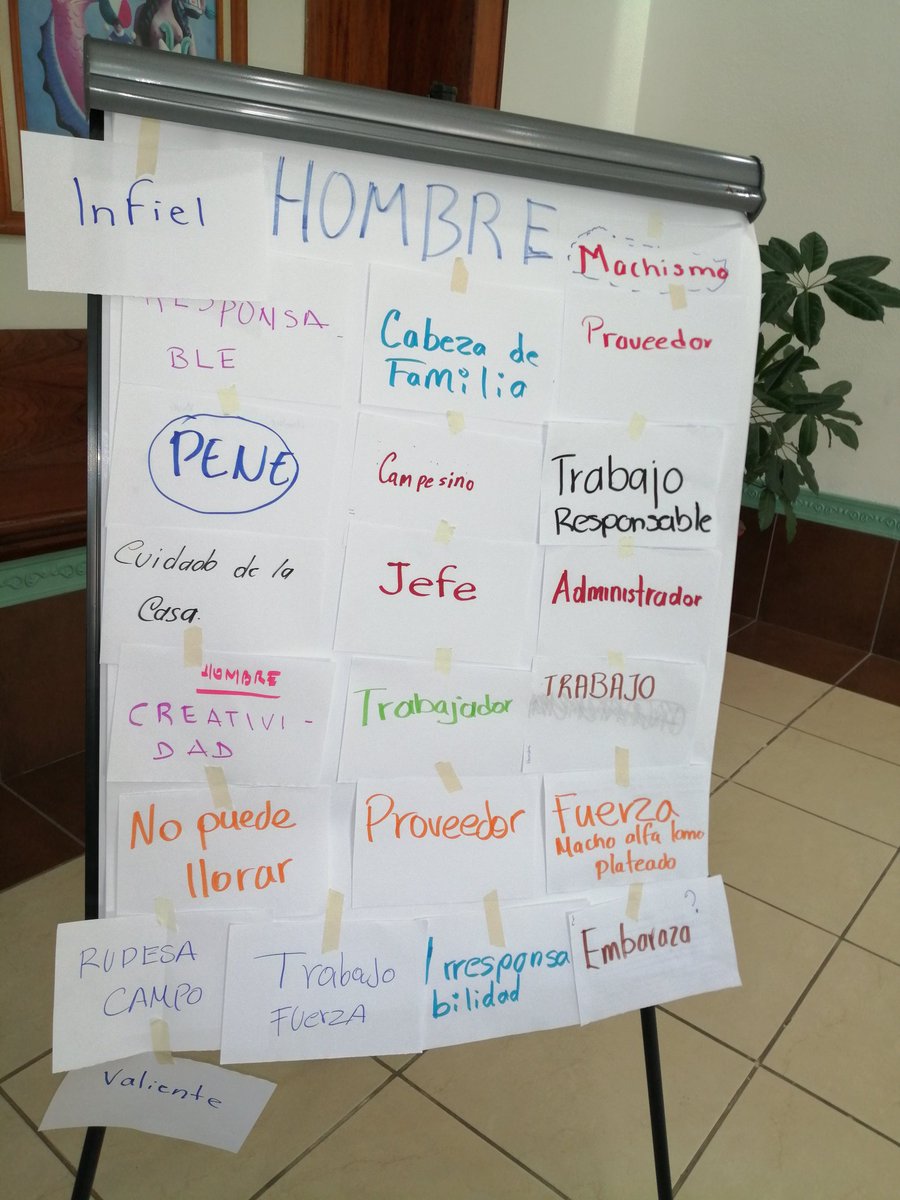 Infiel
HOMBRE
Machismo
RESPONSA-
BLE
Cabeza de
Familia
Proveedor
PENE
Campesino
Trabajo
Responsable
Cuidado de la
Casa.
Jefe
Administrador
HOMBRE
CREATIVI-
DAD
Trabajador
TRABAJO
No puede
llorar
Proveedor
Fuerza
Macho alfa lomo
plateado
RUDESA
CAMPO
Trabajo
FUERZA
Irresponsa
bilidad
¿Embaraza?
Valiente